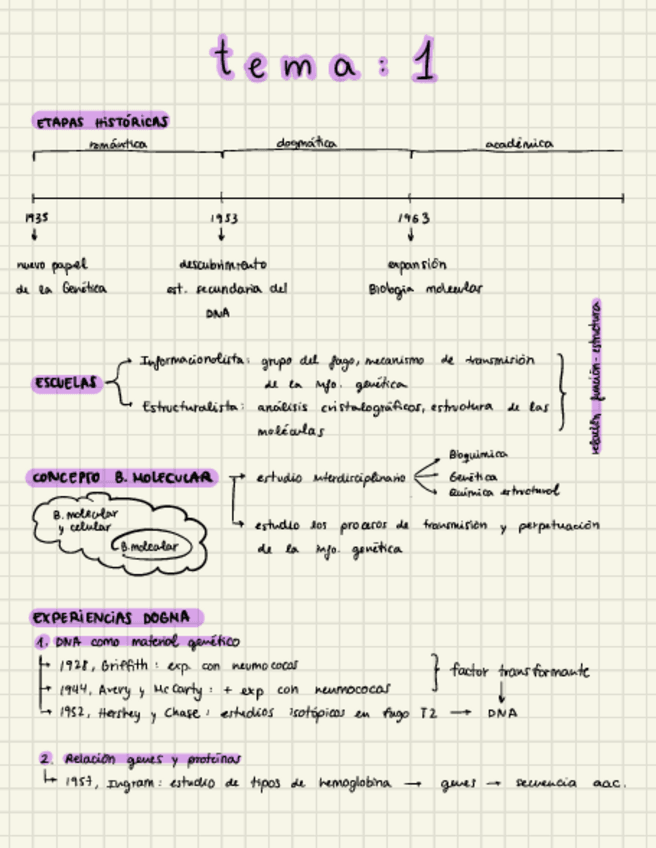 tema: 1
ETAPAS HISTÓRICAS
romántica dogmática académica
1935 1953 1963
nuevo papel descubrimiento expansión
de la Genética est. secundaria del Biología molecular
DNA
relación función-estructura
Informacionalista: grupo del fago, mecanismo de transmisión
de la info. genética
ESCUELAS
Estructuralista: análisis cristalográficos, estructura de las
moléculas
Bioquímica
CONCEPTO B. MOLECULAR estudio interdisciplinario Genética
Química estructural
B. molecular
y celular
B. molecular
estudio los procesos de transmisión y perpetuación
de la info. genética
EXPERIENCIAS DOGMA
1. DNA como material genético
1928, Griffith: exp. con neumococos
factor transformante
1944, Avery y McCarty: + exp con neumococos
1952, Hershey y Chase: estudios isotópicos en fago T2 → DNA
2. Relación genes y proteínas
1957, Ingram: estudio de tipos de hemoglobina → genes → secuencia aac.